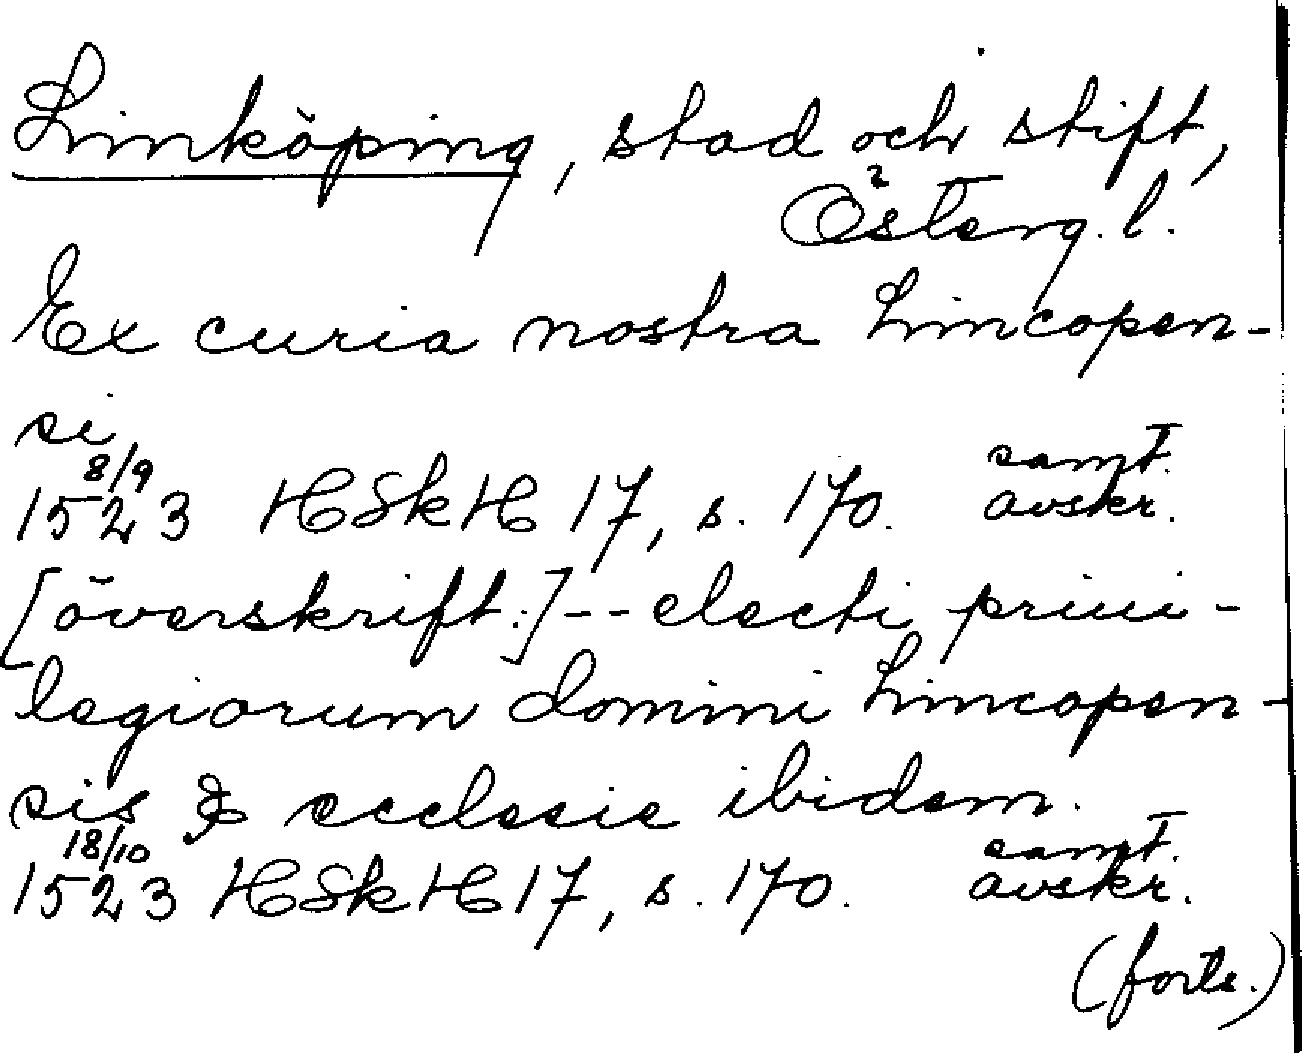 Linköping, stad och stift,
Österg. l.
Ex curia nostra Lincopen-
si
8/9 samt.
1523 HSkH 17, s. 170. avskr.
[överskrift:]-- electi priui-
legiorum domini Lincopen-
sis & ecclesie ibidem.
18/10 samt.
1523 HSkH 17, s. 170. avskr.
(forts.)